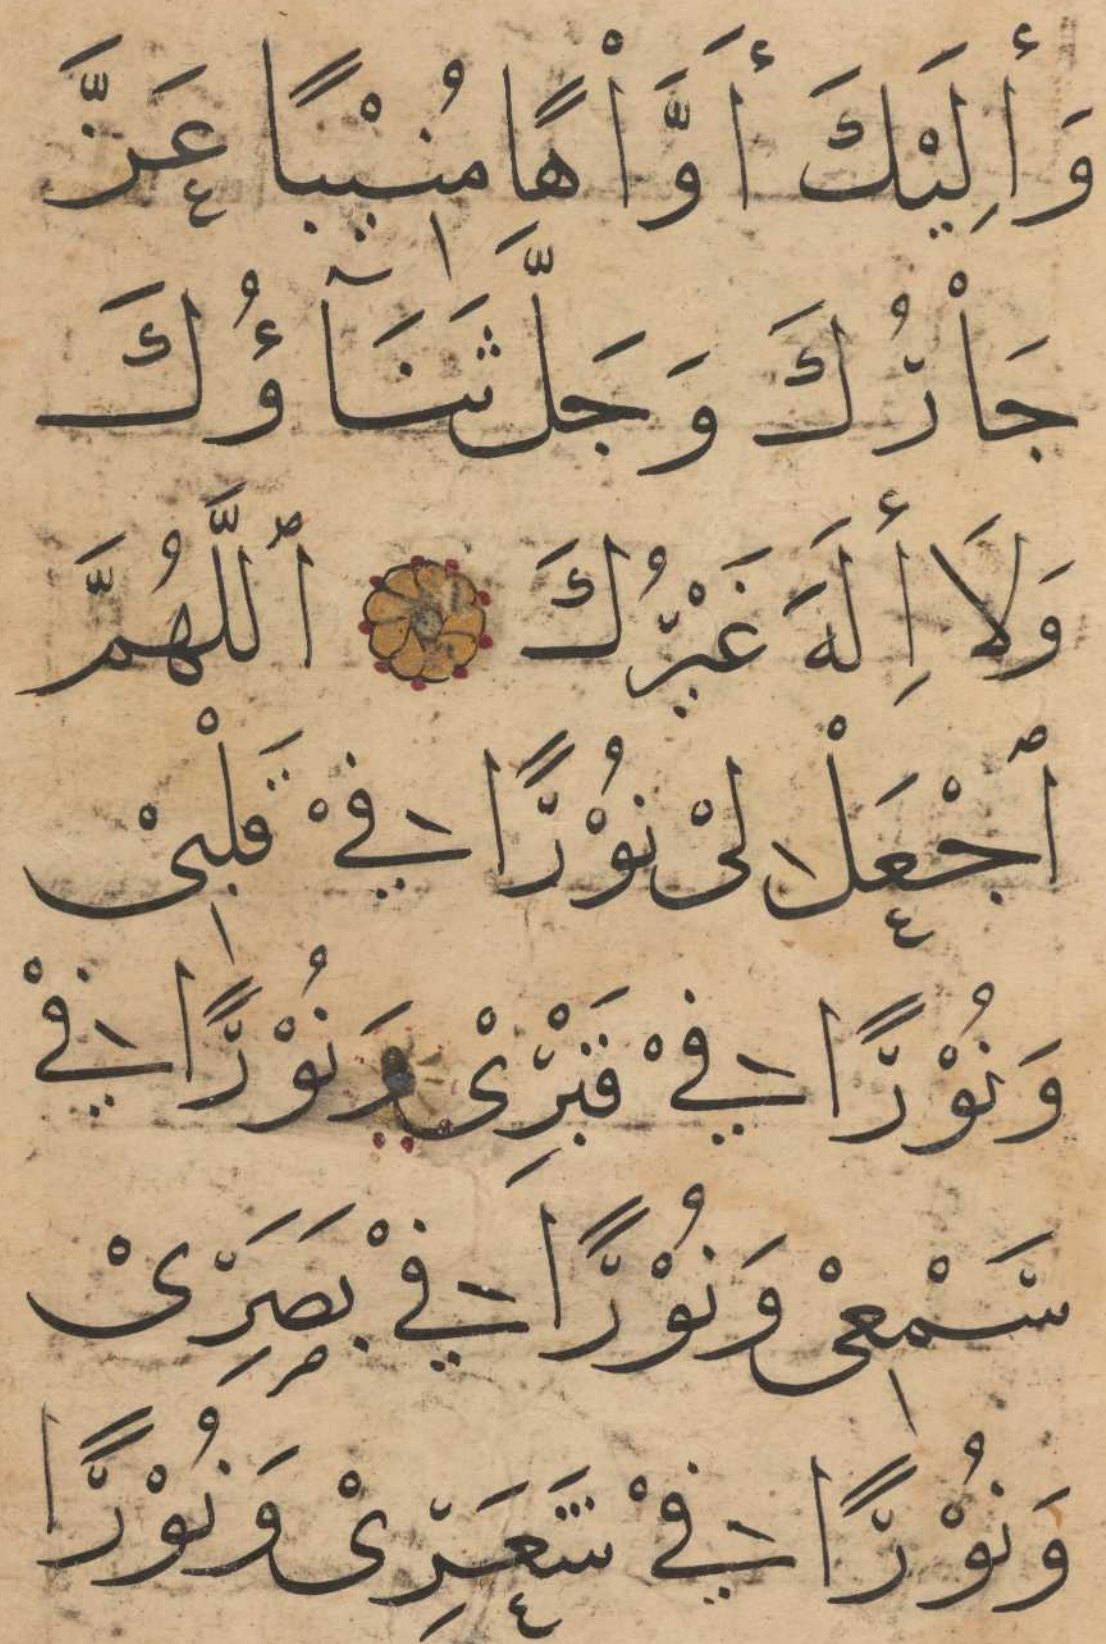 وَأِلَيْكَ أَوَّاْهًا مُنِيْبًا عَزَّ
جَاْرُكَ وَجَلَّ ثَنَآؤُكَ
وَلَا أِلَهَ غَيْرُكَ ٱللَّهُمَّ
ٱجْعَلْ لِىْ نُوْرًا فِيْ قَلْبِىْ
وَنُوْرًا فِيْ قَبْرِىْ وَنُوْرًا فِيْ
سَمْعِىْ وَنُوْرًا فِيْ بَصَرِىْ
وَنُوْرًا فِيْ شَعَرِىْ وَنُوْرًا